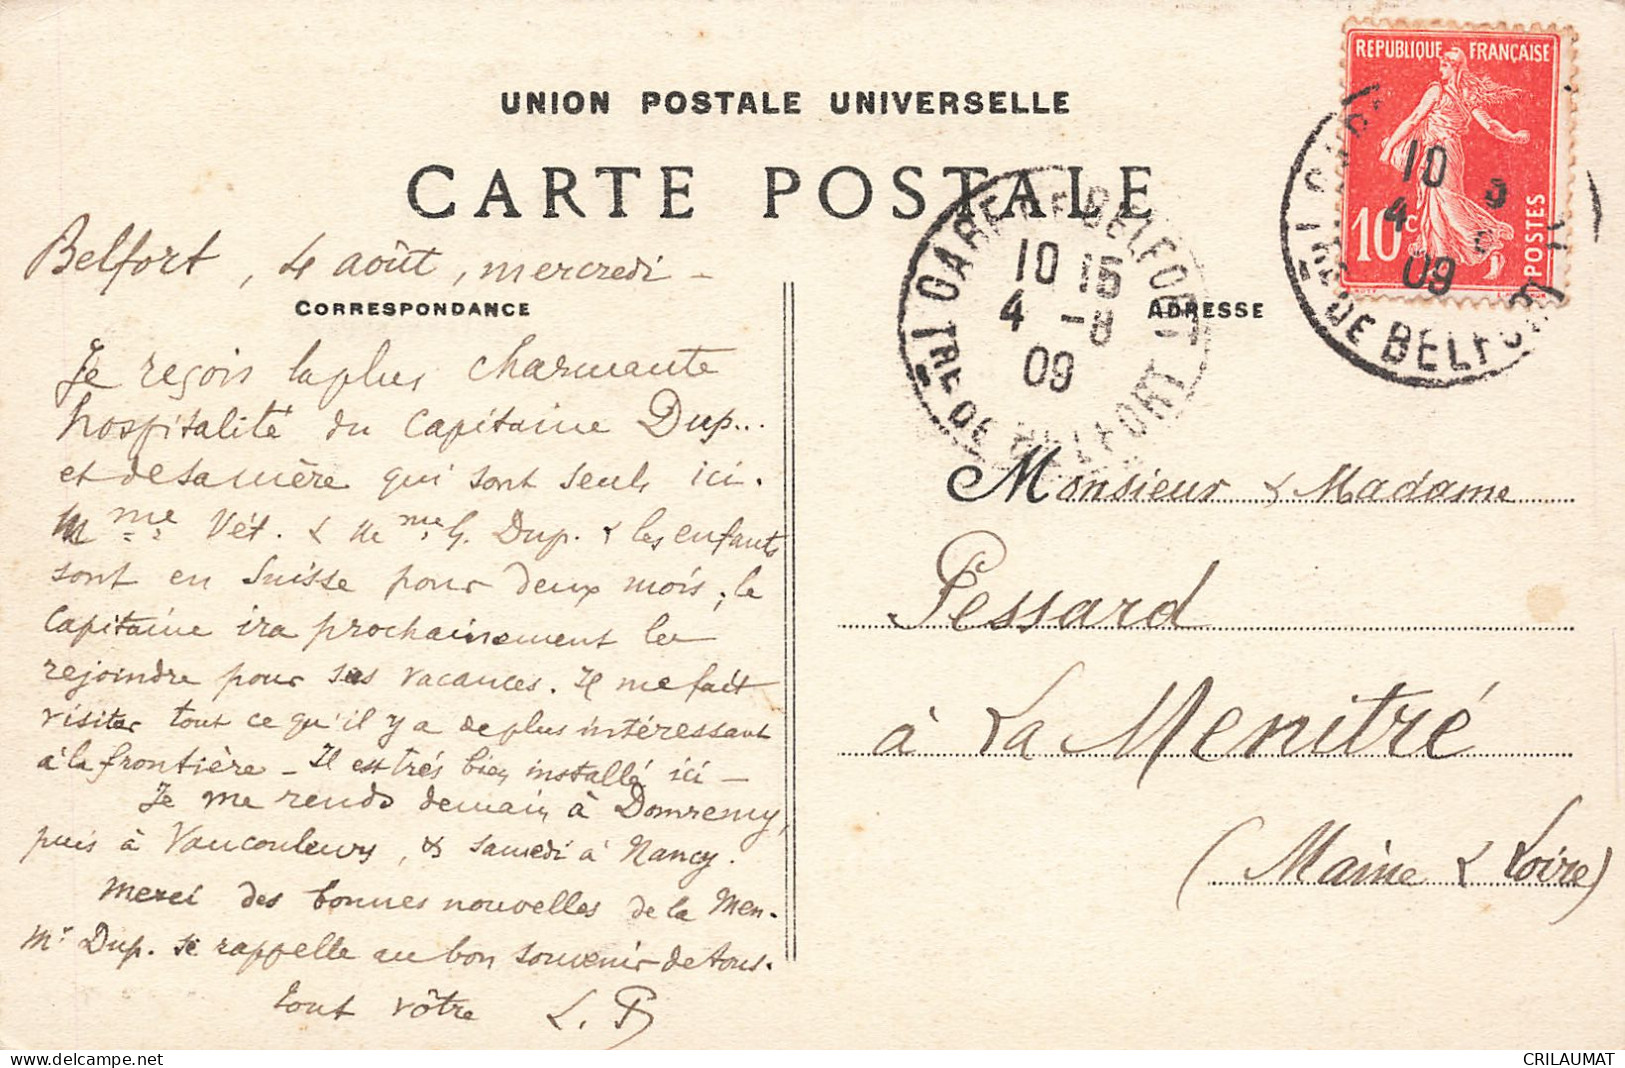 UNION POSTALE UNIVERSELLE
CARTE POSTALE
REPUBLIQUE FRANÇAISE
10c
POSTES
GARE DE BELFORT
10 15
4 -8
09
TRE DE BELFORT
10
4
09
TRE DE BELFORT
Belfort, 4 août, mercredi -
CORRESPONDANCE
Je reçois la plus charmante
hospitalité du Capitaine Dup...
et de sa mère qui sont seuls ici.
Mme Vét. & Me G. Dup. & les enfants
sont en Suisse pour deux mois ; le
Capitaine ira prochainement les
rejoindre pour ses vacances. Il me fait
visiter tout ce qu'il y a de plus intéressant
à la frontière - Il est très bien installé ici -
Je me rends demain à Domremy,
puis à Vaucouleurs, & samedi à Nancy.
Merci des bonnes nouvelles de la Men.
Mr Dup. se rappelle au bon souvenir de tous.
tout vôtre L. P.
ADRESSE
Monsieur & Madame
Pessard
à La Menitré
(Maine & Loire)
www.delcampe.net
CRILAUMAT